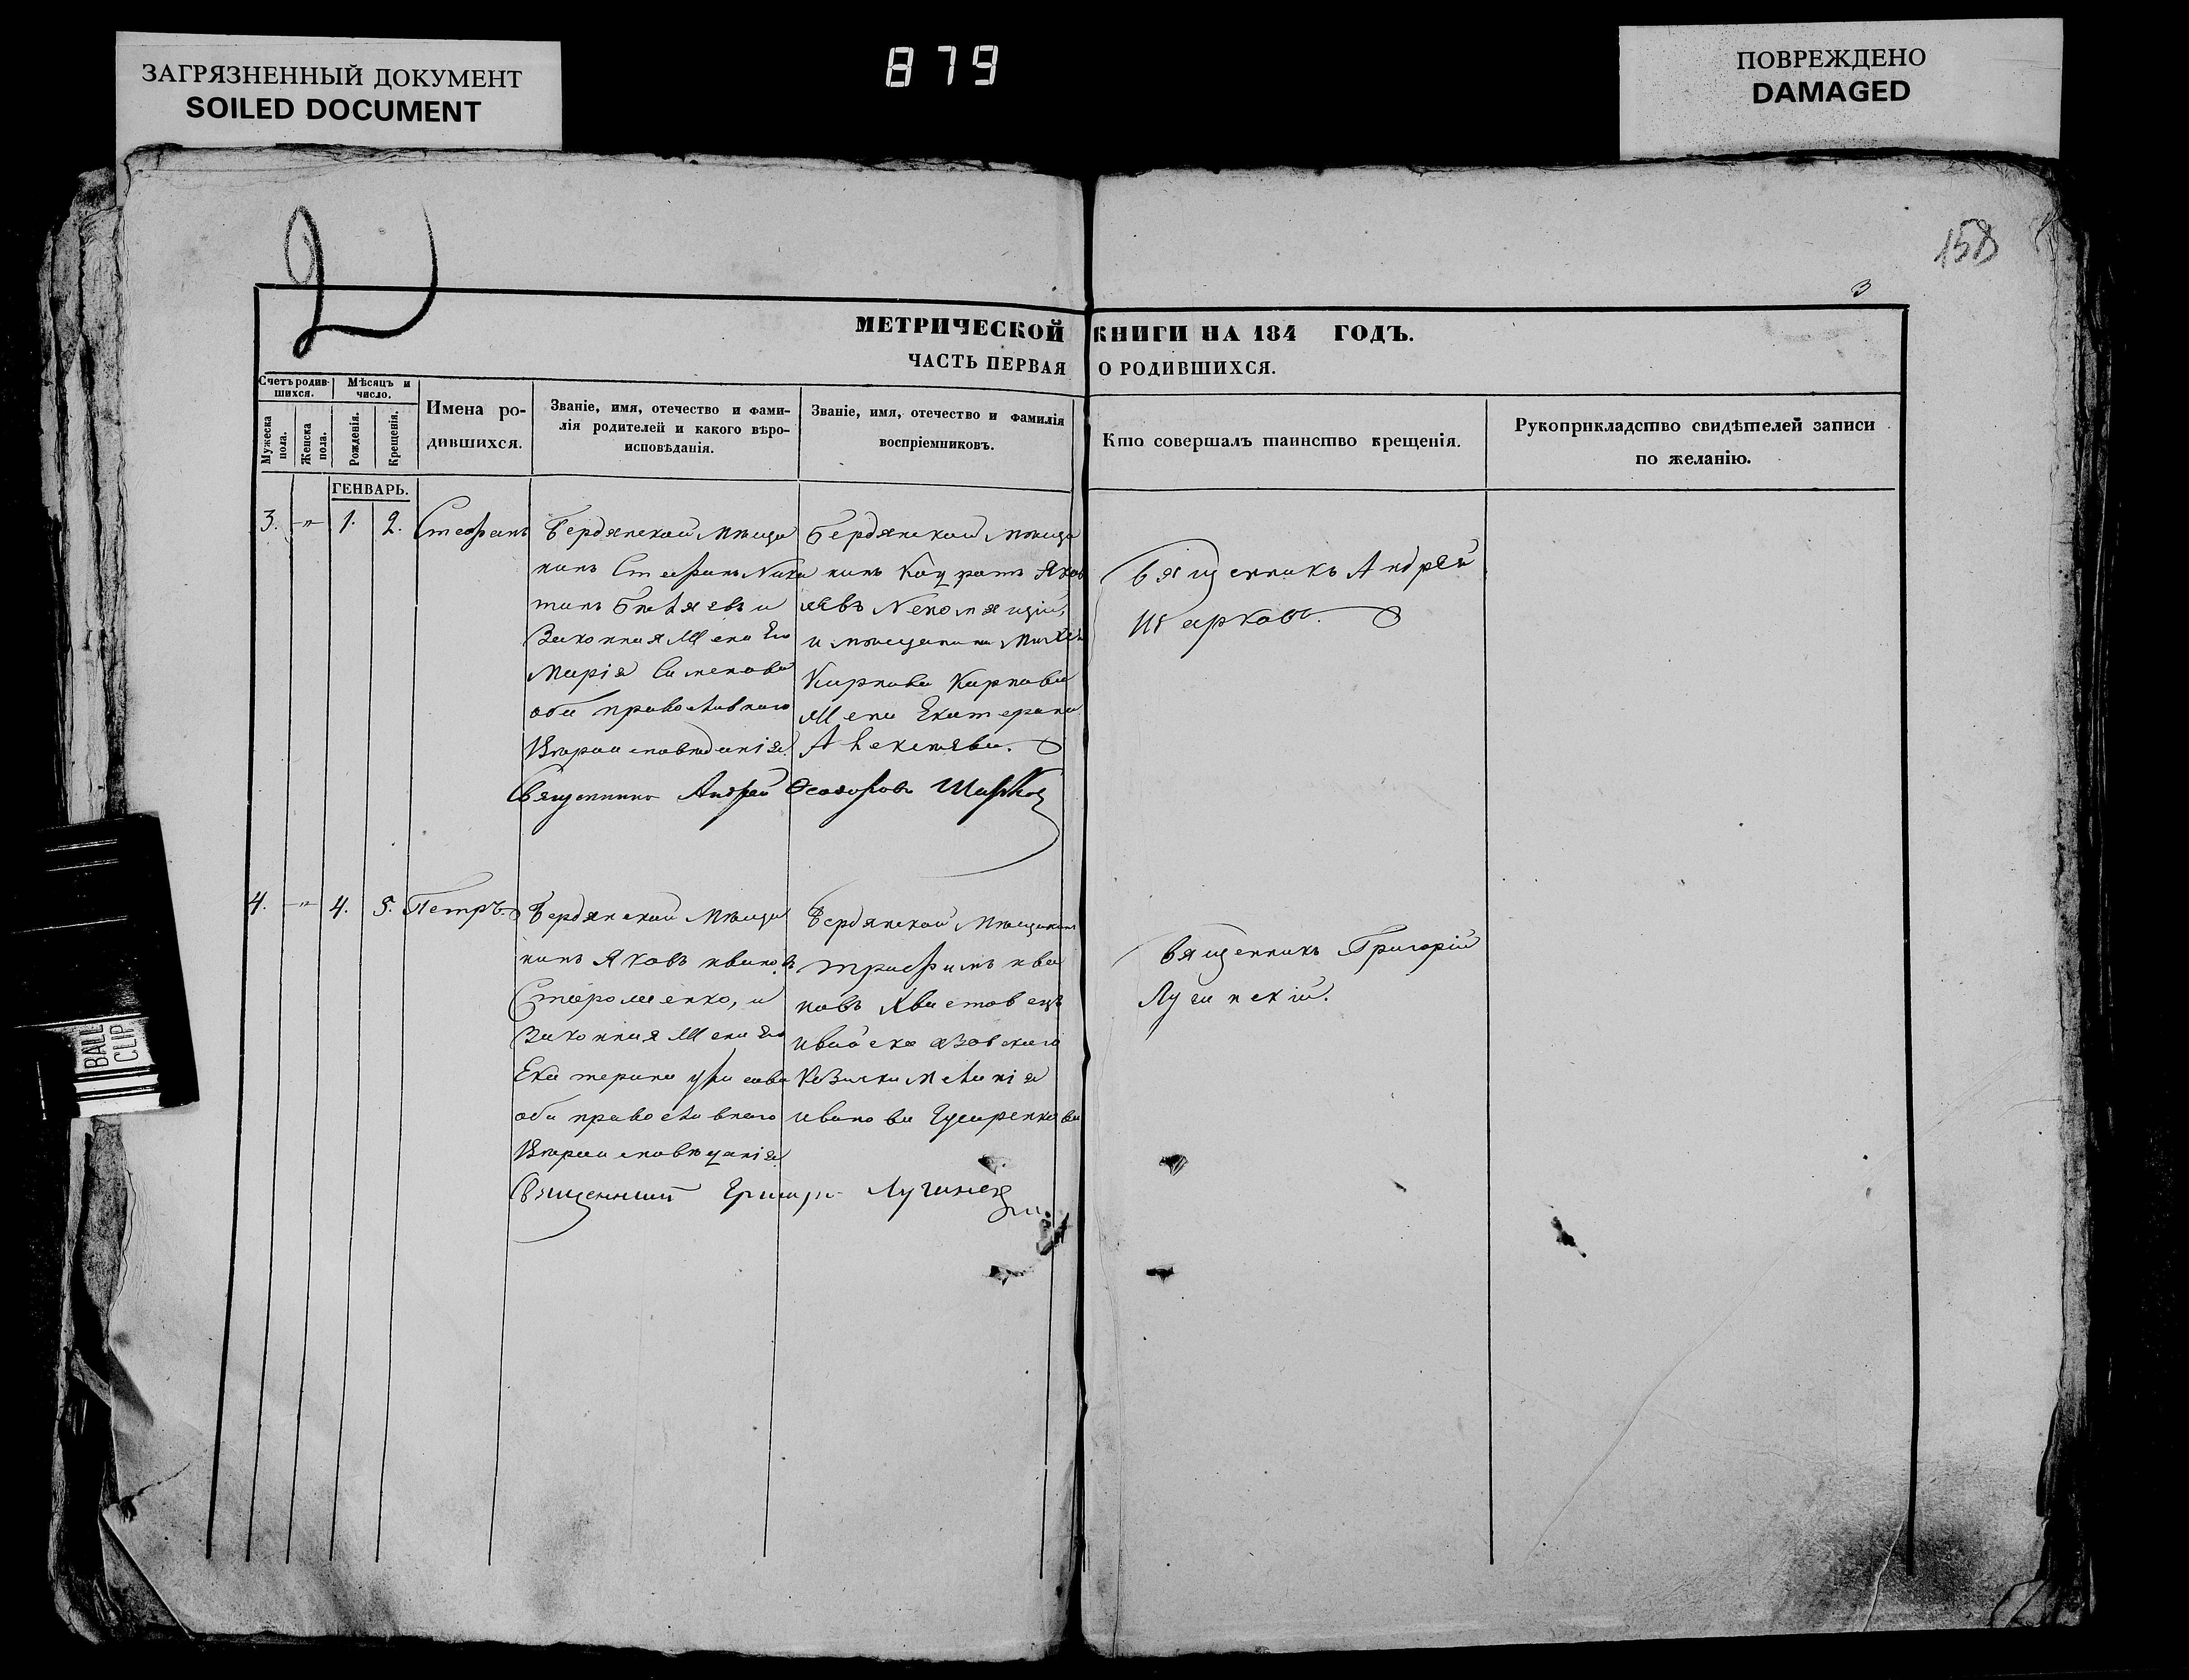 ЗАГРЯЗНЕННЫЙ ДОКУМЕНТ
SOILED DOCUMENT
879
ПОВРЕЖДЕНО
DAMAGED
158
3
МЕТРИЧЕСКОЙ КНИГИ НА 184 ГОДЪ.
ЧАСТЬ ПЕРВАЯ О РОДИВШИХСЯ.
Счетъ родив-
шихся.
Мужеска пола.
Женска пола.
Мѣсяцъ и
число.
Рожденія.
Крещенія.
Имена ро-
дившихся.
Званіе, имя, отечество и фами-
лія родителей и какого вѣро-
исповѣданія.
Званіе, имя, отечество и фамилія
воспріемниковъ.
Кто совершалъ таинство крещенія.
Рукоприкладство свидѣтелей записи
по желанію.
ГЕНВАРЬ.
3. -"- 1. 2. Стефанъ
Бердянской мѣща
нинъ Стефанъ Ники
тинъ и
Законная Жена Его
Марія Симеонова
оба православнаго
Вѣроисповѣданія
Бердянской мѣща
нинъ Яков
левъ
и мѣщанина
Карпова Карпова
Жена Екатерина
Алексѣева.
Священникъ Андрей
Шарковъ.
Священникъ Андрей Феодоровъ Шарков
4. -"- 4. 5. Петръ
Бердянской Мѣща
нинъ Яковъ Ивановъ
Стороженко, и
Законная Жена Его
Екатерина
оба православнаго
Вѣроисповѣданія
Бердянской Мѣщанинъ
Трифимъ Ива
новъ Хвастовецъ
и войска Азовскаго
Казачка Меланія
Иванова
Священникъ Григорій
Лучинскій.
Священникъ Григорій Лучинскій
BALL
CLIP